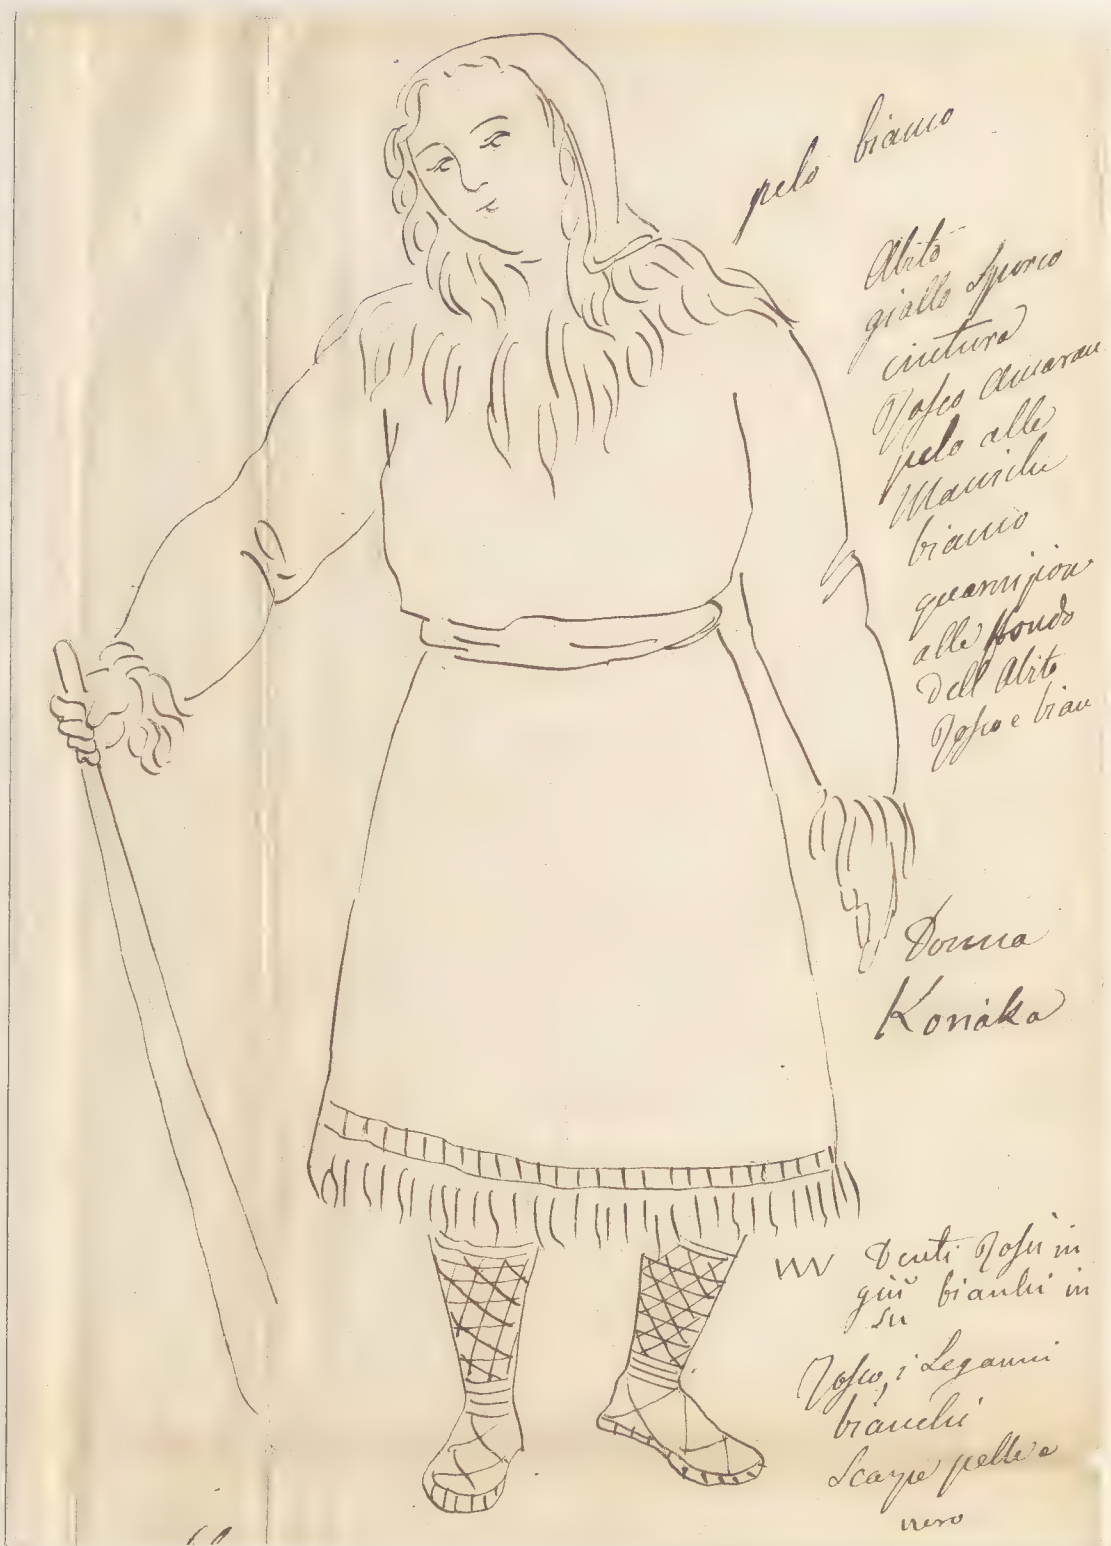 pelo bianco
Abito
giallo Sporco
cintura
Rosso Amaran
pelo alle
Maniche
bianco
guarnizion
alle fondo
dell Abito
Rosso e bian
Donna
Koriáka
Denti Rossi in
giù bianchi in
su
Rosso, i Legami
bianchi
Scarpe pelle e
nero